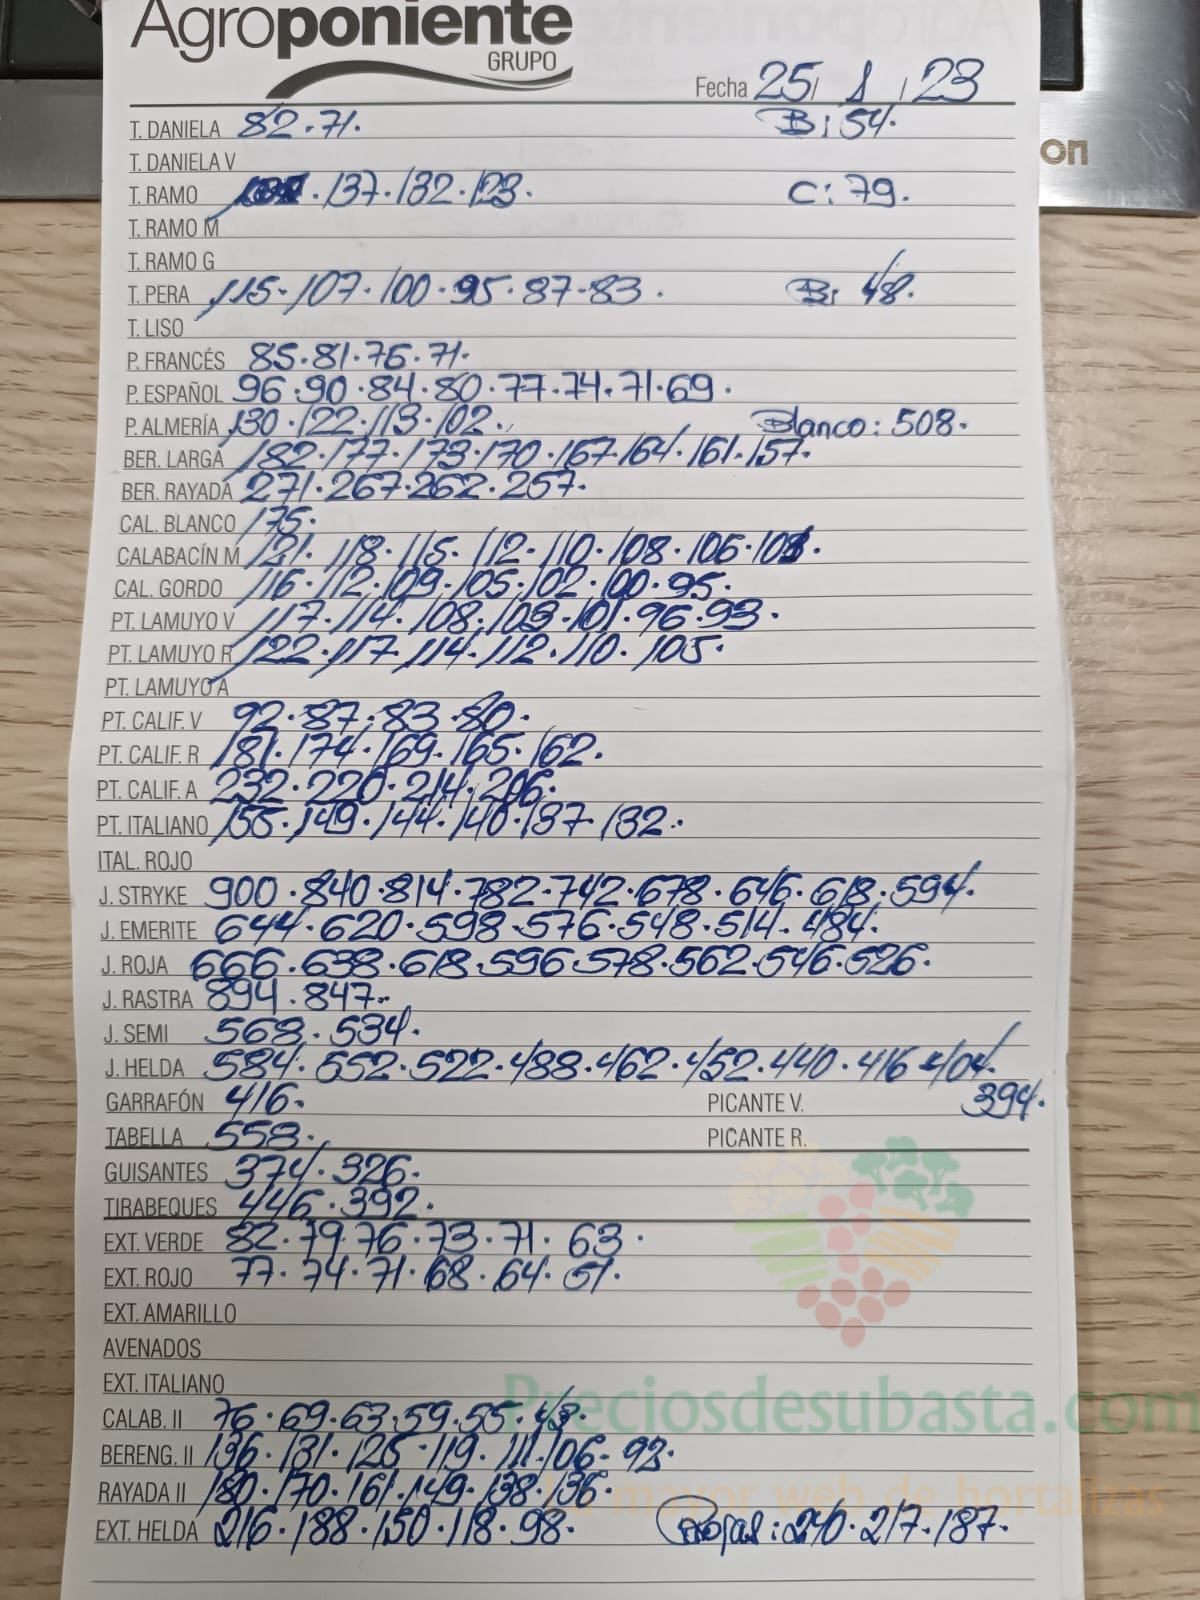 Agroponiente
GRUPO
Fecha 25/ 1 / 23
T. DANIELA 82.71. B: 54.
T. DANIELA V
on
T. RAMO .137.132.123. C: 79.
T. RAMO M
T. RAMO G
T. PERA 115.107.100.95.87.83. B: 48.
T. LISO
P. FRANCÉS 85.81.76.71.
P. ESPAÑOL 96.90.84.80.77.74.71.69.
P. ALMERÍA 130.122.113.102. Blanco: 508.
BER. LARGA 182.177.173.170.167.164.161.157.
BER. RAYADA 271.267.262.257.
CAL. BLANCO 175.
CALABACÍN M 121.118.115.112.110.108.106.103.
CAL. GORDO 116.112.109.105.102.100.95.
PT. LAMUYO V 117.114.108.103.101.96.93.
PT. LAMUYO R 122.117.114.112.110.105.
PT. LAMUYO A
PT. CALIF. V 92.87.83.80.
PT. CALIF. R 181.174.169.165.162.
PT. CALIF. A 232.220.214.206.
PT. ITALIANO 155.149.144.140.137.132.
ITAL. ROJO
J. STRYKE 900.840.814.782.742.678.646.618.594.
J. EMERITE 644.620.598.576.548.514.484.
J. ROJA 666.638.618.596.578.562.546.526.
J. RASTRA 894.847.
J. SEMI 568.534.
J. HELDA 584.552.522.488.462.452.440.416.404.
GARRAFÓN 416. PICANTE V. 394.
TABELLA 558. PICANTE R.
GUISANTES 374.326.
TIRABEQUES 446.392.
EXT. VERDE 82.79.76.73.71.63.
EXT. ROJO 77.74.71.68.64.51.
EXT. AMARILLO
AVENADOS
EXT. ITALIANO
Preciosdesubasta.com
CALAB. II 76.69.63.59.55.43.
BERENG. II 136.131.125.119.111.106.93.
RAYADA II 180.170.161.149.138.136.
mayor web de hortalizas
EXT. HELDA 216.188.150.118.98. Rojas: 240.217.187.